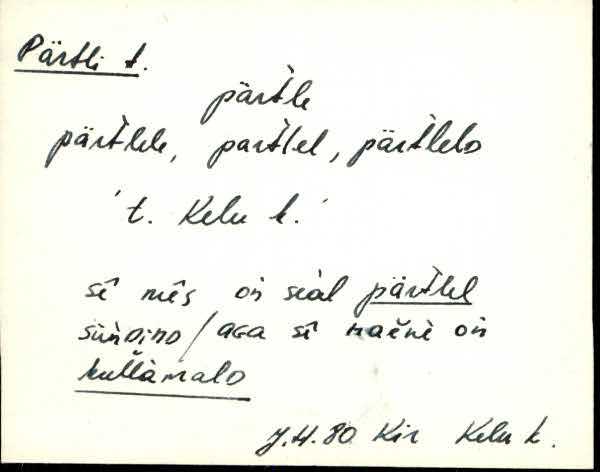 Pärtli t.
pärt̀le
pärt̀lele, part̀lel, pärt̀lelD
't. Kelu k.'
sê mês on seàl pärt̀lel
sünDinD / aGa sê naène on
J.H. 80 Kir Kelu k.